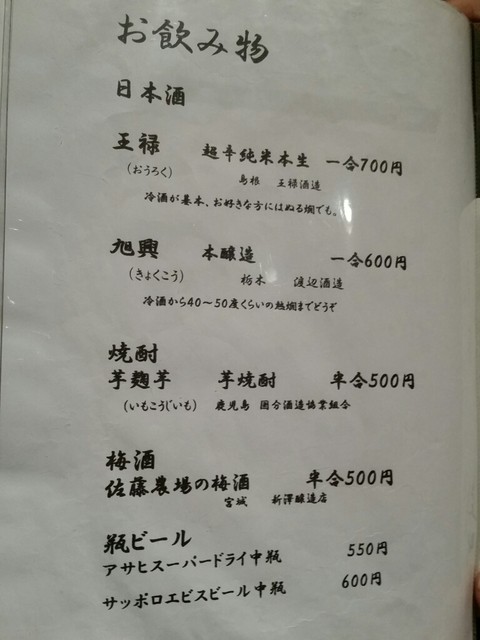 お飲み物
日本酒
王禄 超辛純米本生 一合700円
(おうろく) 島根 王禄酒造
冷酒が基本、お好きな方にはぬる燗でも。
旭興 本醸造 一合600円
(きょくこう) 栃木 渡辺酒造
冷酒から40～50度くらいの熱燗までどうぞ
焼酎
芋麹芋 芋焼酎 半合500円
(いもこうじいも) 鹿児島 国分酒造協業組合
梅酒
佐藤農場の梅酒 半合500円
宮城 新澤醸造店
瓶ビール
アサヒスーパードライ中瓶 550円
サッポロエビスビール中瓶 600円